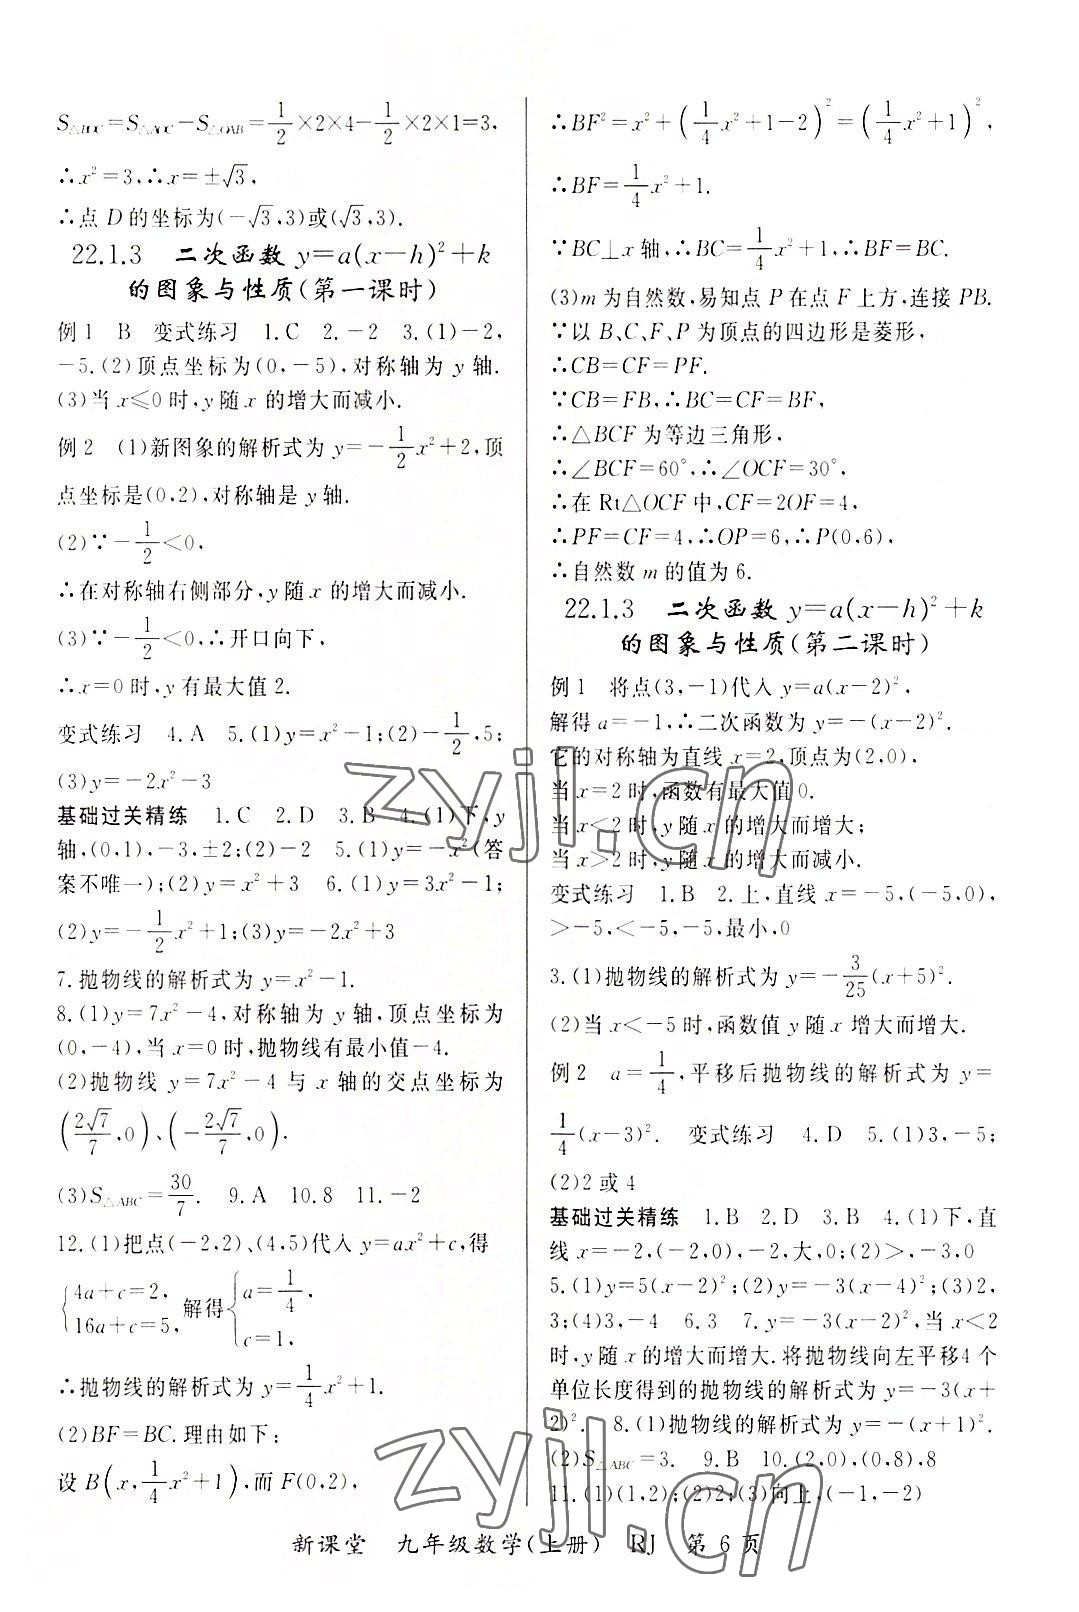 S△BDC=S△AOC-S△OAB=1/2×2×4-1/2×2×1=3,
∴x²=3,∴x=±√3,
∴点 D 的坐标为(-√3,3)或(√3,3).
22.1.3 二次函数 y=a(x-h)²+k
的图象与性质(第一课时)
例1 B 变式练习 1.C 2.-2 3.(1)-2,
-5.(2)顶点坐标为(0,-5),对称轴为 y 轴.
(3)当 x≤0 时,y 随 x 的增大而减小.
例2 (1)新图象的解析式为 y=-1/2x²+2,顶
点坐标是(0,2),对称轴是 y 轴.
(2)∵-1/2<0,
∴在对称轴右侧部分,y 随 x 的增大而减小.
(3)∵-1/2<0,∴开口向下,
∴x=0 时,y 有最大值 2.
变式练习 4.A 5.(1)y=x²-1;(2)-1/2,5;
(3)y=-2x²-3
基础过关精练 1.C 2.D 3.B 4.(1)下,y
轴,(0,1),-3,±2;(2)-2 5.(1)y=-x²(答
案不唯一);(2)y=x²+3 6.(1)y=3x²-1;
(2)y=-1/2x²+1;(3)y=-2x²+3
7.抛物线的解析式为 y=x²-1.
8.(1)y=7x²-4,对称轴为 y 轴,顶点坐标为
(0,-4),当 x=0 时,抛物线有最小值-4.
(2)抛物线 y=7x²-4 与 x 轴的交点坐标为
(2√7/7,0)、(-2√7/7,0).
(3)S△ABC=30/7. 9.A 10.8 11.-2
12.(1)把点(-2,2)、(4,5)代入 y=ax²+c,得
{4a+c=2, 16a+c=5, 解得{a=1/4, c=1,
∴抛物线的解析式为 y=1/4x²+1.
(2)BF=BC.理由如下:
设 B(x,1/4x²+1),而 F(0,2),
∴BF²=x²+(1/4x²+1-2)²=(1/4x²+1)²,
∴BF=1/4x²+1.
∵BC⊥x 轴,∴BC=1/4x²+1,∴BF=BC.
(3)m 为自然数,易知点 P 在点 F 上方,连接 PB.
∵以 B、C、F、P 为顶点的四边形是菱形,
∴CB=CF=PF.
∵CB=FB,∴BC=CF=BF,
∴△BCF 为等边三角形,
∴∠BCF=60°,∴∠OCF=30°,
∴在 Rt△OCF 中,CF=2OF=4,
∴PF=CF=4,∴OP=6,∴P(0,6),
∴自然数 m 的值为 6.
22.1.3 二次函数 y=a(x-h)²+k
的图象与性质(第二课时)
例1 将点(3,-1)代入 y=a(x-2)²,
解得 a=-1,∴二次函数为 y=-(x-2)².
它的对称轴为直线 x=2,顶点为(2,0),
当 x=2 时,函数有最大值 0.
当 x<2 时,y 随 x 的增大而增大;
当 x>2 时,y 随 x 的增大而减小.
变式练习 1.B 2.上,直线 x=-5,(-5,0),
>-5,<-5,-5,最小,0
3.(1)抛物线的解析式为 y=-3/25(x+5)².
(2)当 x<-5 时,函数值 y 随 x 增大而增大.
例2 a=1/4,平移后抛物线的解析式为 y=
1/4(x-3)². 变式练习 4.D 5.(1)3,-5;
(2)2 或 4
基础过关精练 1.B 2.D 3.B 4.(1)下,直
线 x=-2,(-2,0),-2,大,0;(2)>,-3,0
5.(1)y=5(x-2)²;(2)y=-3(x-4)²;(3)2,
3;(4)3,-4 6.3 7.y=-3(x-2)²,当 x<2
时,y 随 x 的增大而增大.将抛物线向左平移4 个
单位长度得到的抛物线的解析式为 y=-3(x+
2)². 8.(1)抛物线的解析式为 y=-(x+1)².
(2)S△ABC=3. 9.B 10.(2,0),(0,8),8
11.(1)(1,2);(2)2;(3)向上,(-1,-2)
新课堂 九年级数学(上册) RJ 第 6 页
zyjl.cn
zyjl.cn